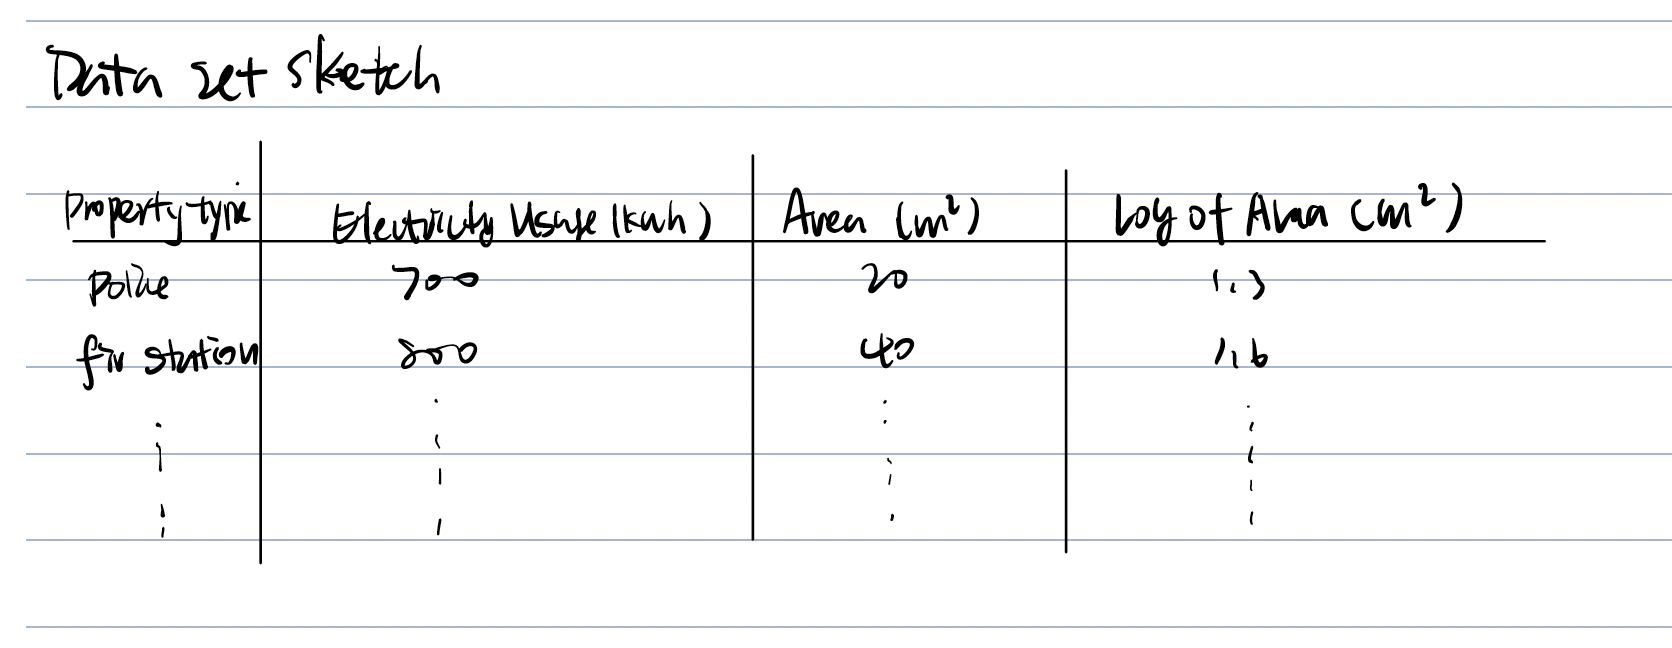 Data set sketch
Property type Electricity Usage (kwh) Area (m²) Log of Area (m²)
Police 700 20 1.3
fire station 800 40 1.6